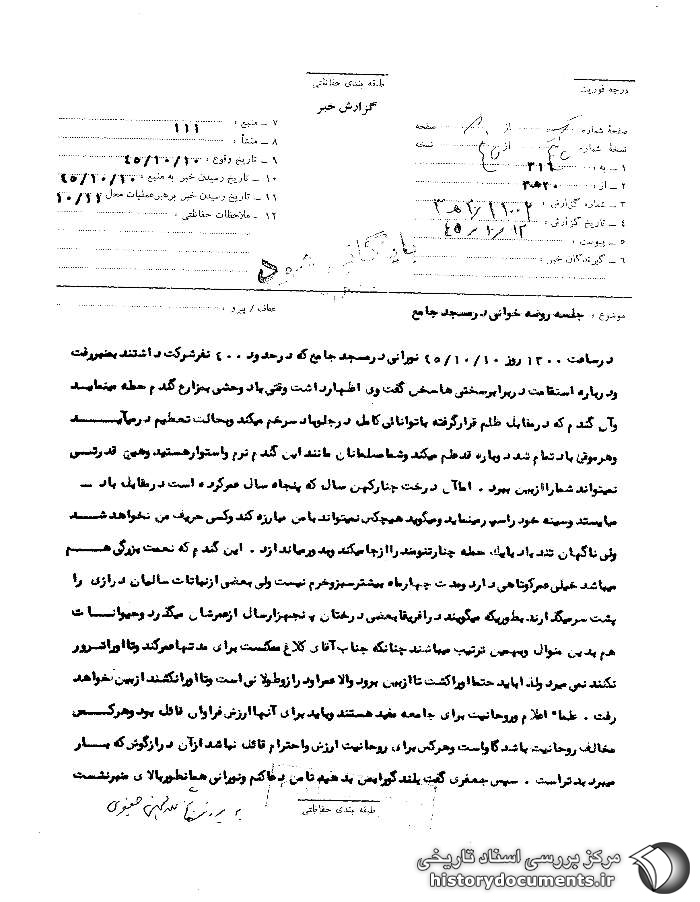 طبقه بندی حفاظتی
درجه فوریت
گزارش خبر
صفحهٔ شماره : از صفحه
نسخهٔ شماره : از نسخه
۱ ـ به : ۳۱۶
۲ ـ از : ۳ﻫ۲۰
۳ ـ شماره گزارش :
۴ ـ تاریخ گزارش : ۴۵/۱۰/۱۲
۵ ـ پیوست :
۶ ـ گیرندگان خبر :
۷ ـ منبع : ۱۱۱
۸ ـ منشأ :
۹ ـ تاریخ وقوع : ۴۵/۱۰/۱۰
۱۰ ـ تاریخ رسیدن خبر به منبع : ۴۵/۱۰/۱۰
۱۱ ـ تاریخ رسیدن خبر برهبرعملیات محل ۱۰/۱۱
۱۲ ـ ملاحظات حفاظتی :
بایگانی شود
موضوع : جلسه روضه خوانی درمسجد جامع
عطف / پیرو :
درساعت ۱۳۰۰ روز ۴۵/۱۰/۱۰ نورانی درمسجد جامع که درحدود ۴۰۰ نفرشرکت داشتند بمنبررفت
ودرباره استقامت دربرابرسختی هاسخن گفت وی اظهارداشت وقتی باد وحشی بمزارع گندم حمله مینماید
وآن گندم که درمقابل ظلم قرارگرفته باتوانائی کامل درجلوباد سرخم میکند وبحالت تعظیم درمیآیـــد
وهرموقع بادتمام شد دوباره قدعلم میکند وشمامسلمانان مانند این گندم نرم واستوارهستید وهیچ قدرتـی
نمیتواند شماراازبین ببرد . اماآن درخت چنارکهن سال که پنجاه سال عمرکرده است درمقابل باد ـ
میایستد وسینه خودراسپرمینماید ومیگوید هیچکس نمیتواند بامن مبارزه کند وکسی حریف من نخواهد شــد
ولی ناگهان تند باد بایك حمله چنارتنومندراازجامیکند وبدورمیاندازد . این گندم که نعمت بزرگی هــم
میباشد خیلی عمرکوتاهی دارد ومدت چهارماه بیشترسبزوخرم نیست ولی بعضی ازنباتات سالیان درازی را
پشت سرمیگذارند بطوریکه میگویند درافریقابعضی درختان پنجهزارسال ازعمرشان میگذرد وحیوانــات
هم بدین منوال وبهمین ترتیب میباشند چنانکه جناب آقای کلاغ ممکنست برای مدتهاعمرکند وتااوراتـرور
نکنند نمی میرد ولذا باید حتمااوراکشت تاازبین برود والا عمراو درازوطولانی است وتااورانکشند ازبین نخواهد
رفت . علماء اعلام وروحانیت برای جامعه مفید هستند وباید برای آنهاارزش فراوان قائل بود وهرکــس
مخالف روحانیت باشد گاواست وهرکس برای روحانیت ارزش واحترام قائل نباشد ازآن درازگوش که بــار
میبرد بدتراست . سپس جعفری گفت بلند گورابمن بدهیدتامن دعاکنم ونورانی همانطوربالای منبرنشست
طبقه بندی حفاظتی
مرکز بررسی اسناد تاریخی
historydocuments.ir